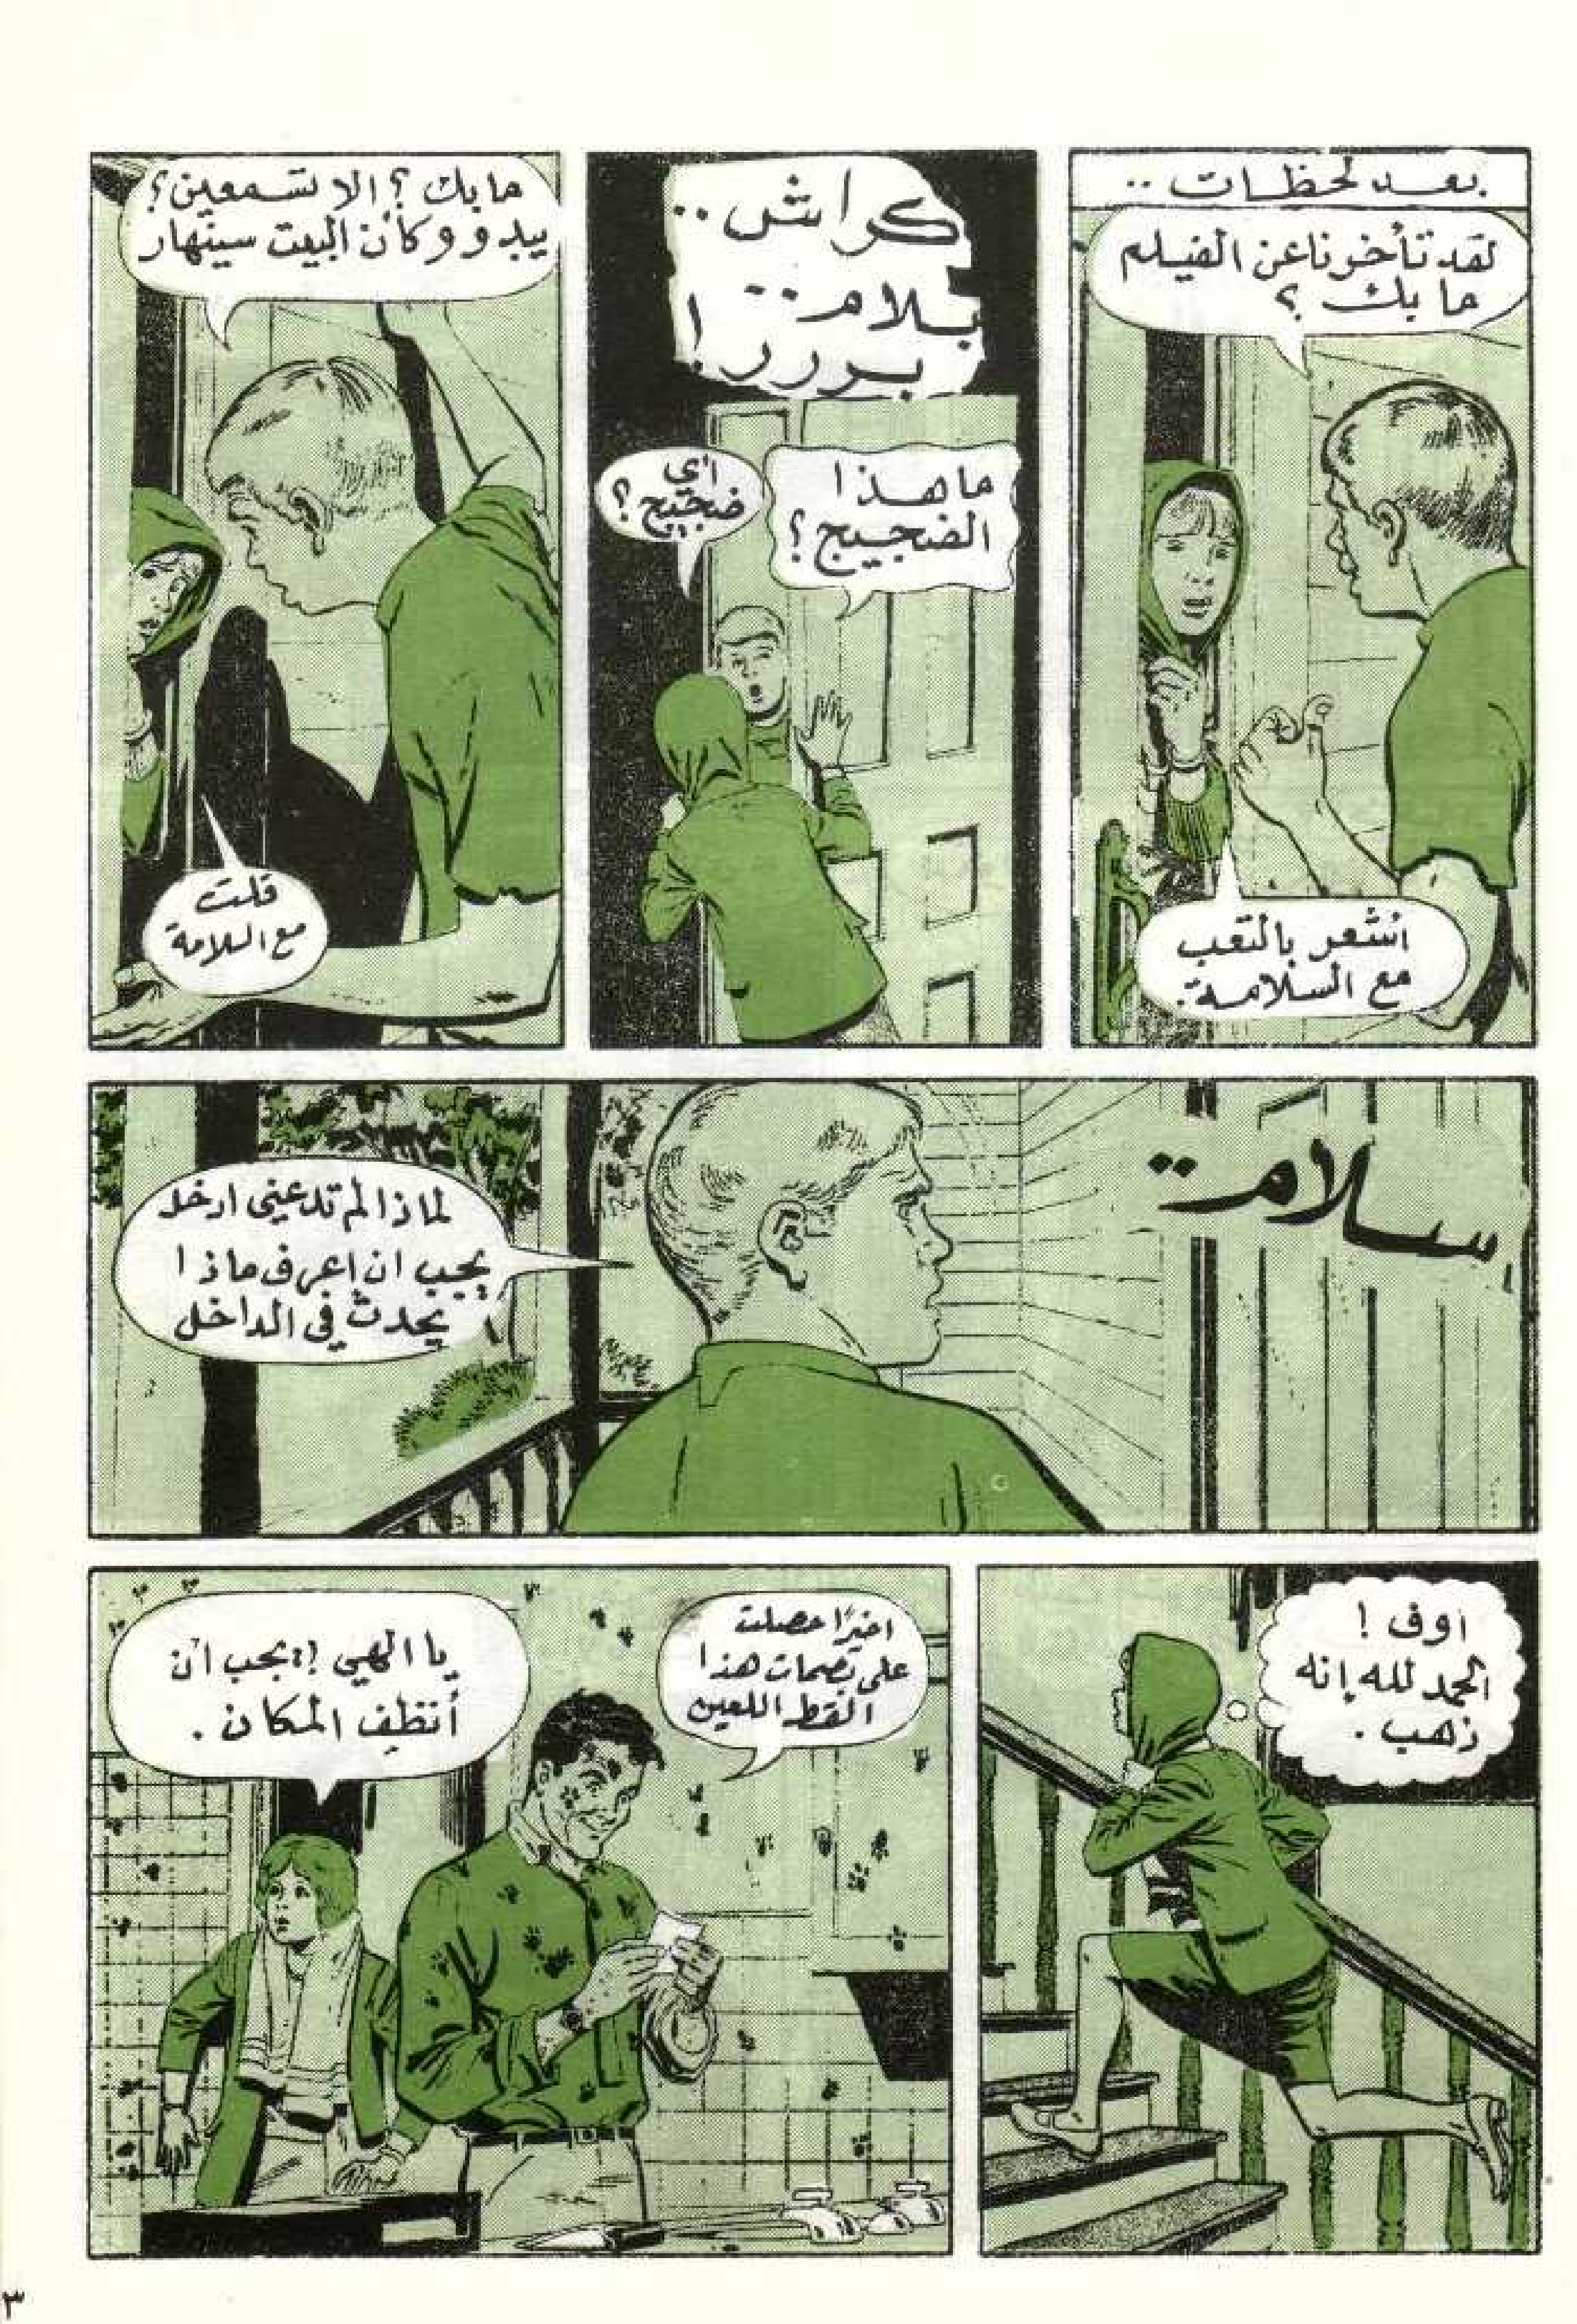 بعد لحظات ..
لقد تأخرنا عن الفيلم
ما بك ؟
أشعر بالتعب
مع السلامة.
كراش ..
بلام ..
بررر !
ما هذا
الضجيج ؟
أي
ضجيج ؟
ما بك ؟ الا تسمعين ؟
يبدو وكأن البيت سينهار
قلت
مع السلامة
سلام ..
لماذا لم تدعني ادخل
يجب ان اعرف ماذا
يحدث في الداخل
اوف !
الحمد لله إنه
ذهب .
اخيرًا حصلت
على بصمات هذا
القط اللعين
يا الهي !! يجب ان
أنظف المكان .
٣